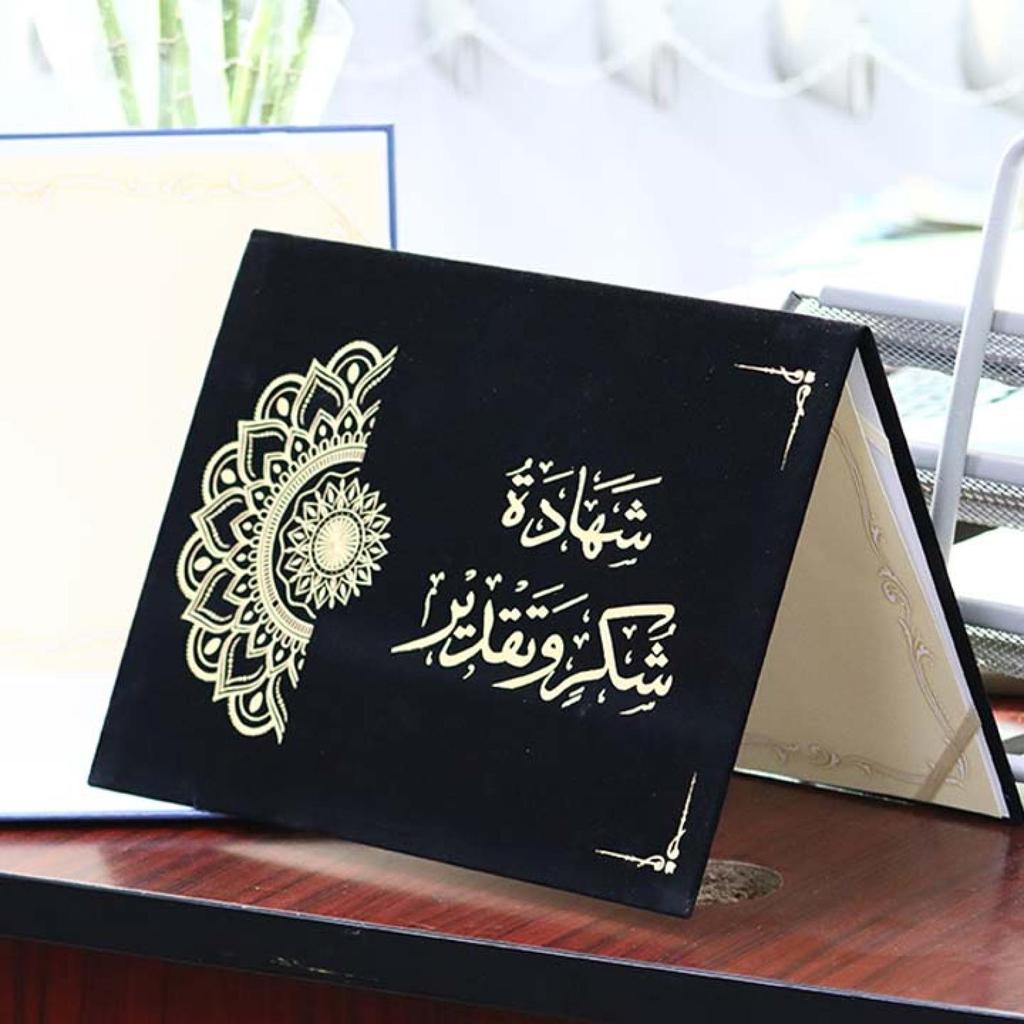 شَهَادَةُ
شُكْرٍ وَتَقْدِيْرٍ